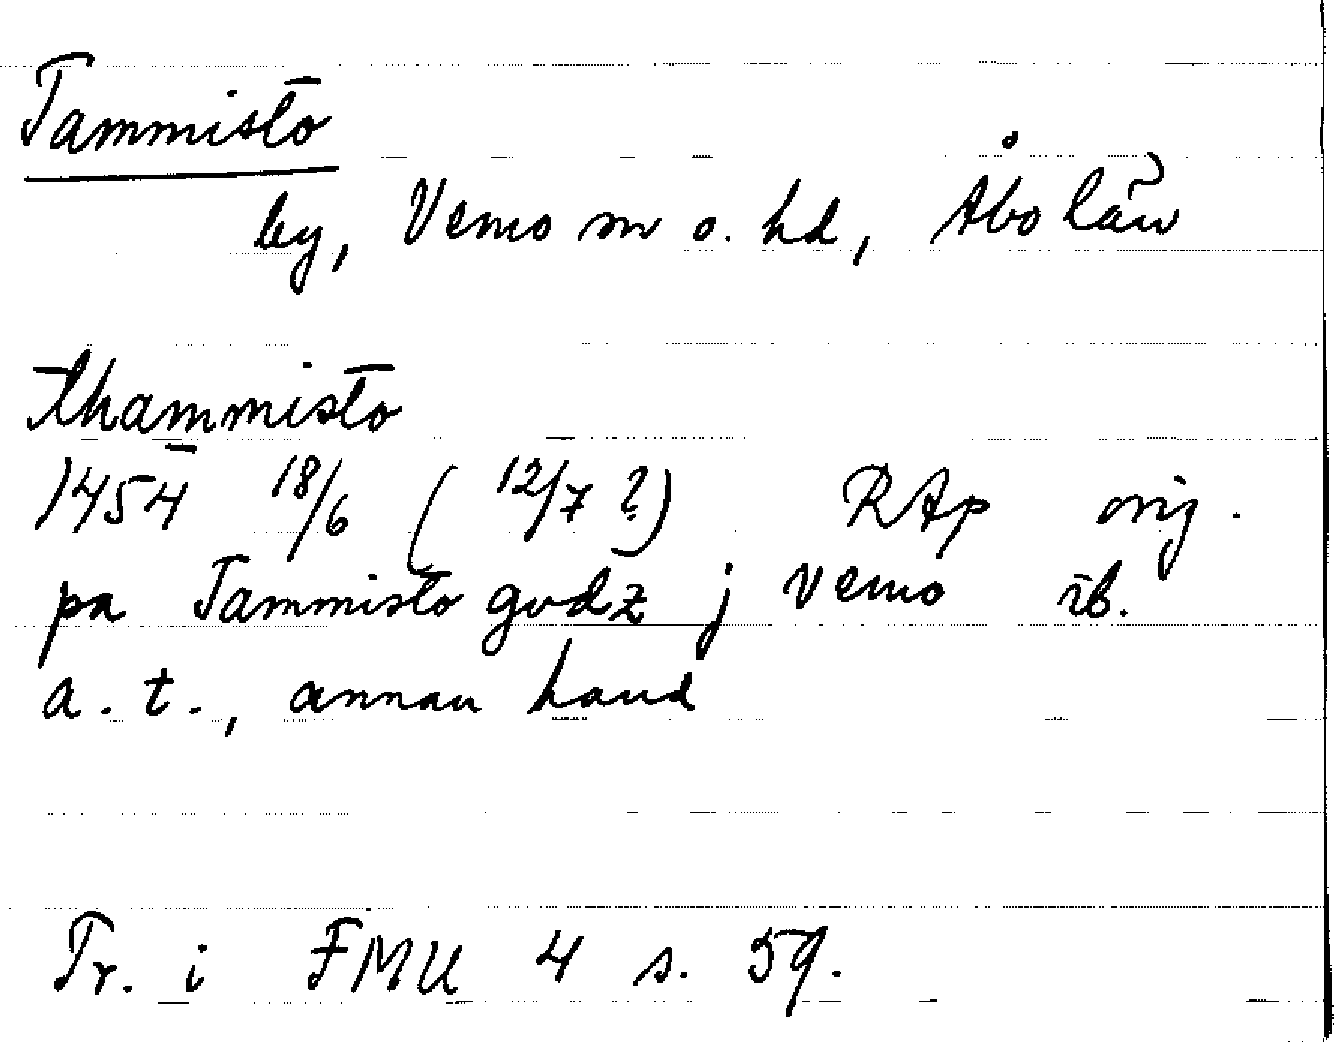 Tammisto
by, Vemo sn o. hd, Åbo län
thammisto
1454 18/6 (12/7 ?) RAp orig.
pa Tammisto godz j Vemo ib.
a. t., annan hand
Tr. i FMU 4 s. 59.